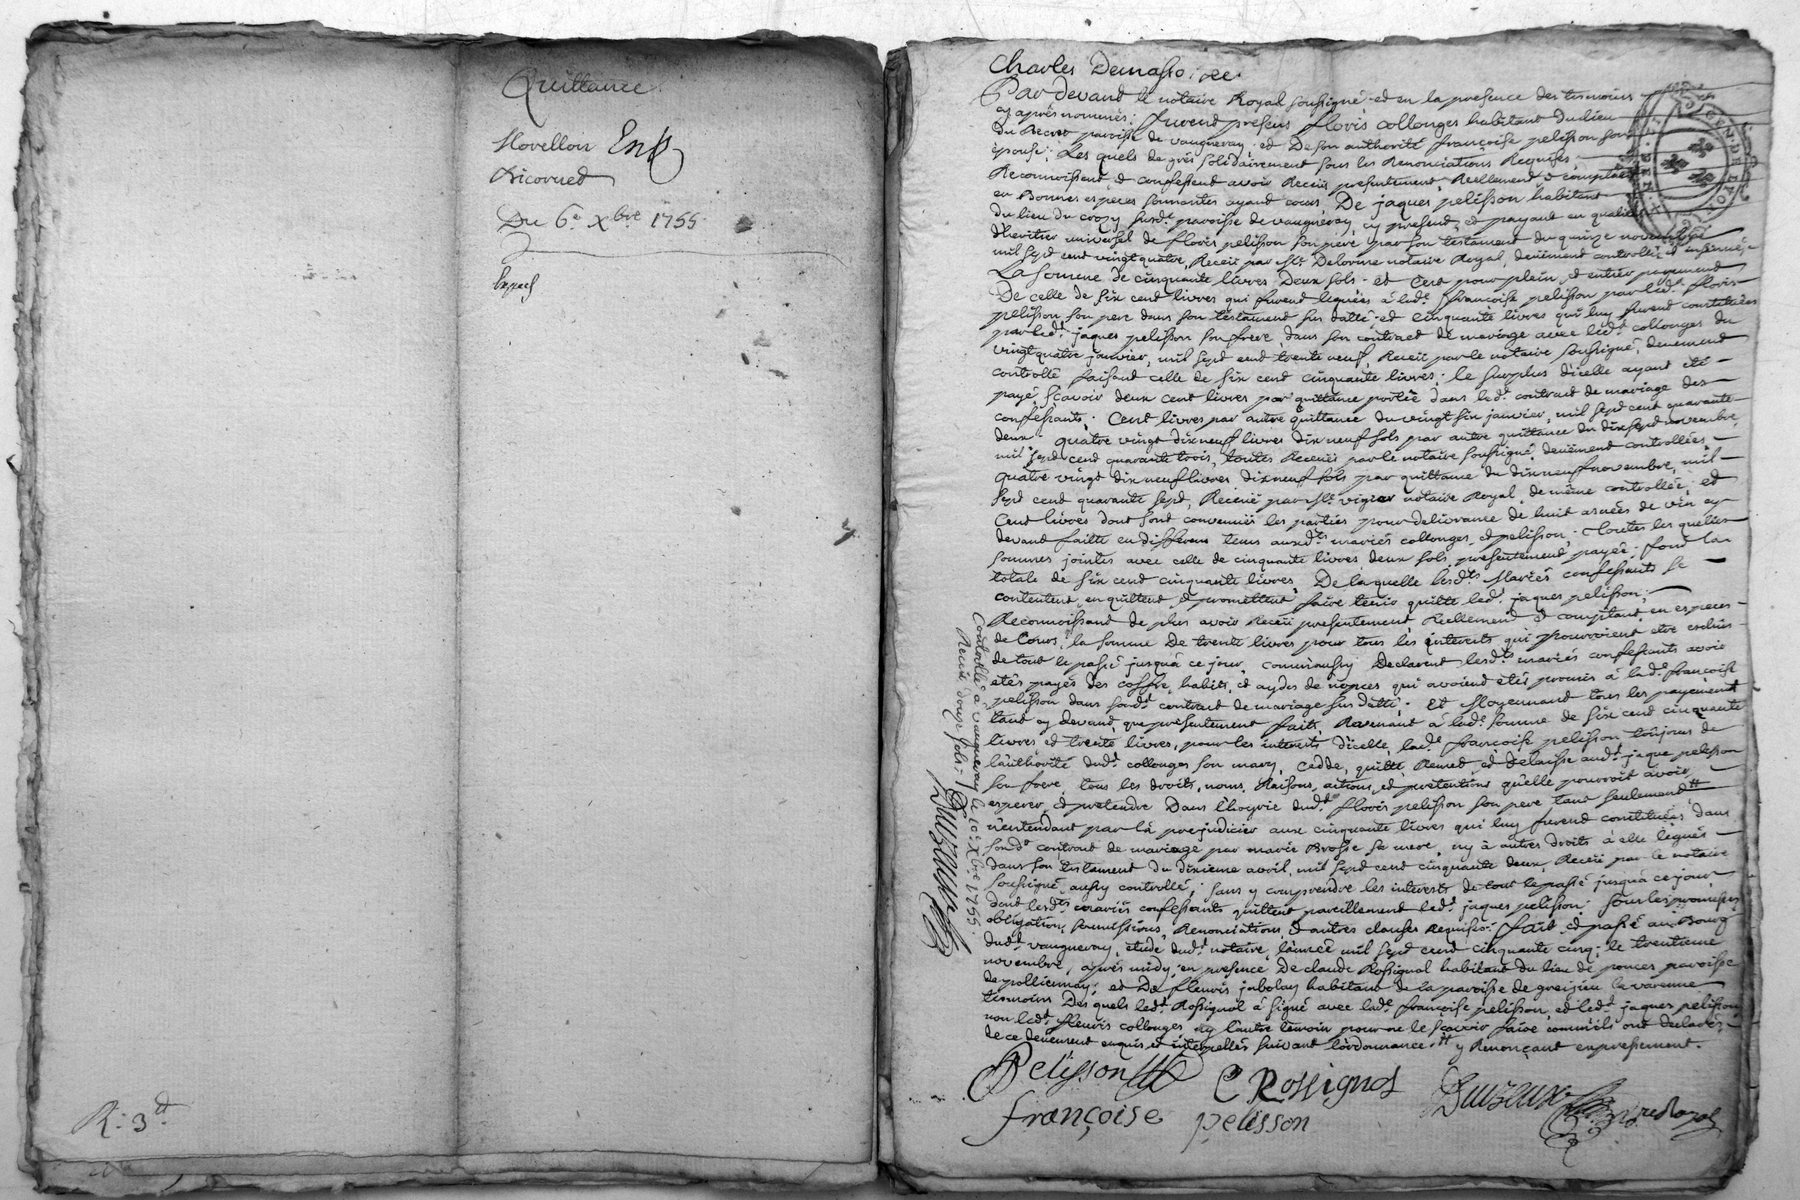 Quittance
Du 6e Xbre 1755
Exped
R: 3 tt
Par devant le notaire Royal soussigné et en la presence des tesmoins
cy aprés nommés; furent presens floris collonges habitant du lieu
du Recret paroisse de vaugneray, et De son authorité françoise pelisson son
épouse; Les quels de grés solidairement sous les Renonciations Requises
Reconnoissent, et confessent avoir Receü presentement, Reellement et comptant
en Bonnes especes sonnantes ayant cours De jaques pelisson habitant
du lieu du crozy susde. paroisse de vaugneray, cy present, et payant en qualité
d'heritier universel de floris pelisson son pere par son testament du quinze novembre
mil sept cent vingt quatre, Receü par Me Delorme notaire Royal, deüement controllé, et insinué
La somme de cinquante livres Deux sols - et C'est pour plein et entier payement
De celle de six cent livres qui furent leguées à lade. françoise pelisson par ledt. floris
pelisson son pere dans son testament sus datté, et cinquante livres qui luy furent constituées
par ledt. jaques pelisson son frere, dans son contract de mariage avec ledt. collonges du
vingt quatre janvier, mil sept cent trente neuf, Receü par le notaire soussigné, deüement
controllé faisant celle de six cent cinquante livres; le surplus d'icelle ayant été
payé sçavoir deux cent livres par quittance portée dans ledt. contract de mariage des
confessants; Cent livres par autre quittance du vingt six janvier, mil sept cent quarante
deux; quatre vingt dix neuf livres dix neuf sols par autre quittance du dix sept novembre
mil sept cent quarante trois, toutes Receües par le notaire soussigné, deüement controllées,
quatre vingt dix neuf livres dix neuf sols par quittance du dix neuf novembre, mil
sept cent quarante sept, Receüe par Me vigier notaire Royal, de même controllée, et
Cent livres dont sont convenües les parties pour delivrance de huit asnées de vin cy
devant faitte en differens tems auxdts. mariés collonges, et pelisson; Toutes les quelles
sommes jointes avec celle de cinquante livres, deux sols, presentement payée; font la
totale de six cent cinquante livres, De laquelle lesdts. Mariés confessants se
contentent, en quittent et promettent faire tenir quitte ledt. jaques pelisson;
Reconnoissant de plus avoir Receü presentement Reellement et comptant, en especes
de Cours, la somme De trente livres pour tous les interests qui pourroient etre
de tout le passé jusqu'à ce jour, comm'aussy Declarent lesdts. mariés confessants avoir
etés payés des coffre, habits, et aydes de nopces qui avoient etés promis à lade. francoise
pelisson dans sondt. contract de mariage sus datté; et Moyennant tous les payements
tant cy devant, que presentement faits, Revenant à lade. somme de six cent cinquante
livres et trente livres, pour les interests d'icelle, lade. francoise pelisson toujours de
l'authorité dudt. collonges son mary, Cedde, quitte, Remet, et Delaisse audt. jaque pelisson
son frere, tous les droits, noms, Raisons, actions, et pretentions qu'elle pourroit avoir,
esperer, et pretendre Dans l'hoyrie dudt. floris pelisson son pere tant seulement
n'entendant par là prejudicier aux cinquante livres qui luy furent constituées dans
sondt. contract de mariage par marie Brosse sa mere, ny à autres droits à elle legués
dans son testament du dixieme avril, mil sept cent cinquante deux, Receü par le notaire
soussigné, aussy controllé; sans y comprendre les interests de tout le passé jusqu'à ce jour
dont lesdts. mariés confessants quittent pareillement ledt. jaques pelisson; sous les promesses
obligation, soumissions, Renonciations, et autres clauses Requises. fait, et passé au Bourg
dudt. vaugneray, etude dudt. notaire, l'année mil sept cent cinquante cinq, le trentieme
novembre, aprés midy, en presence De claude Rossignol habitant du lieu de ponces paroisse
de pollionnay, et De fleuris jubolay habitant de la paroisse de grezieu la varenne
tesmoins Des quels ledt. Rossignol à signé avec lade. françoise pelisson, et ledt. jaques pelisson
non ledt. fleuris collonges, ny l'autre temoin pour ne le sçavoir faire comm'ils ont declarés
de ce deüement enquis, et interpellés suivant l'ordonnance. tt y Renonçant expressement.
Controllé à vaugneray le 10e. Xbre 1755
Receü douze sols
Pelisson
C Rossignol
françoise pelisson